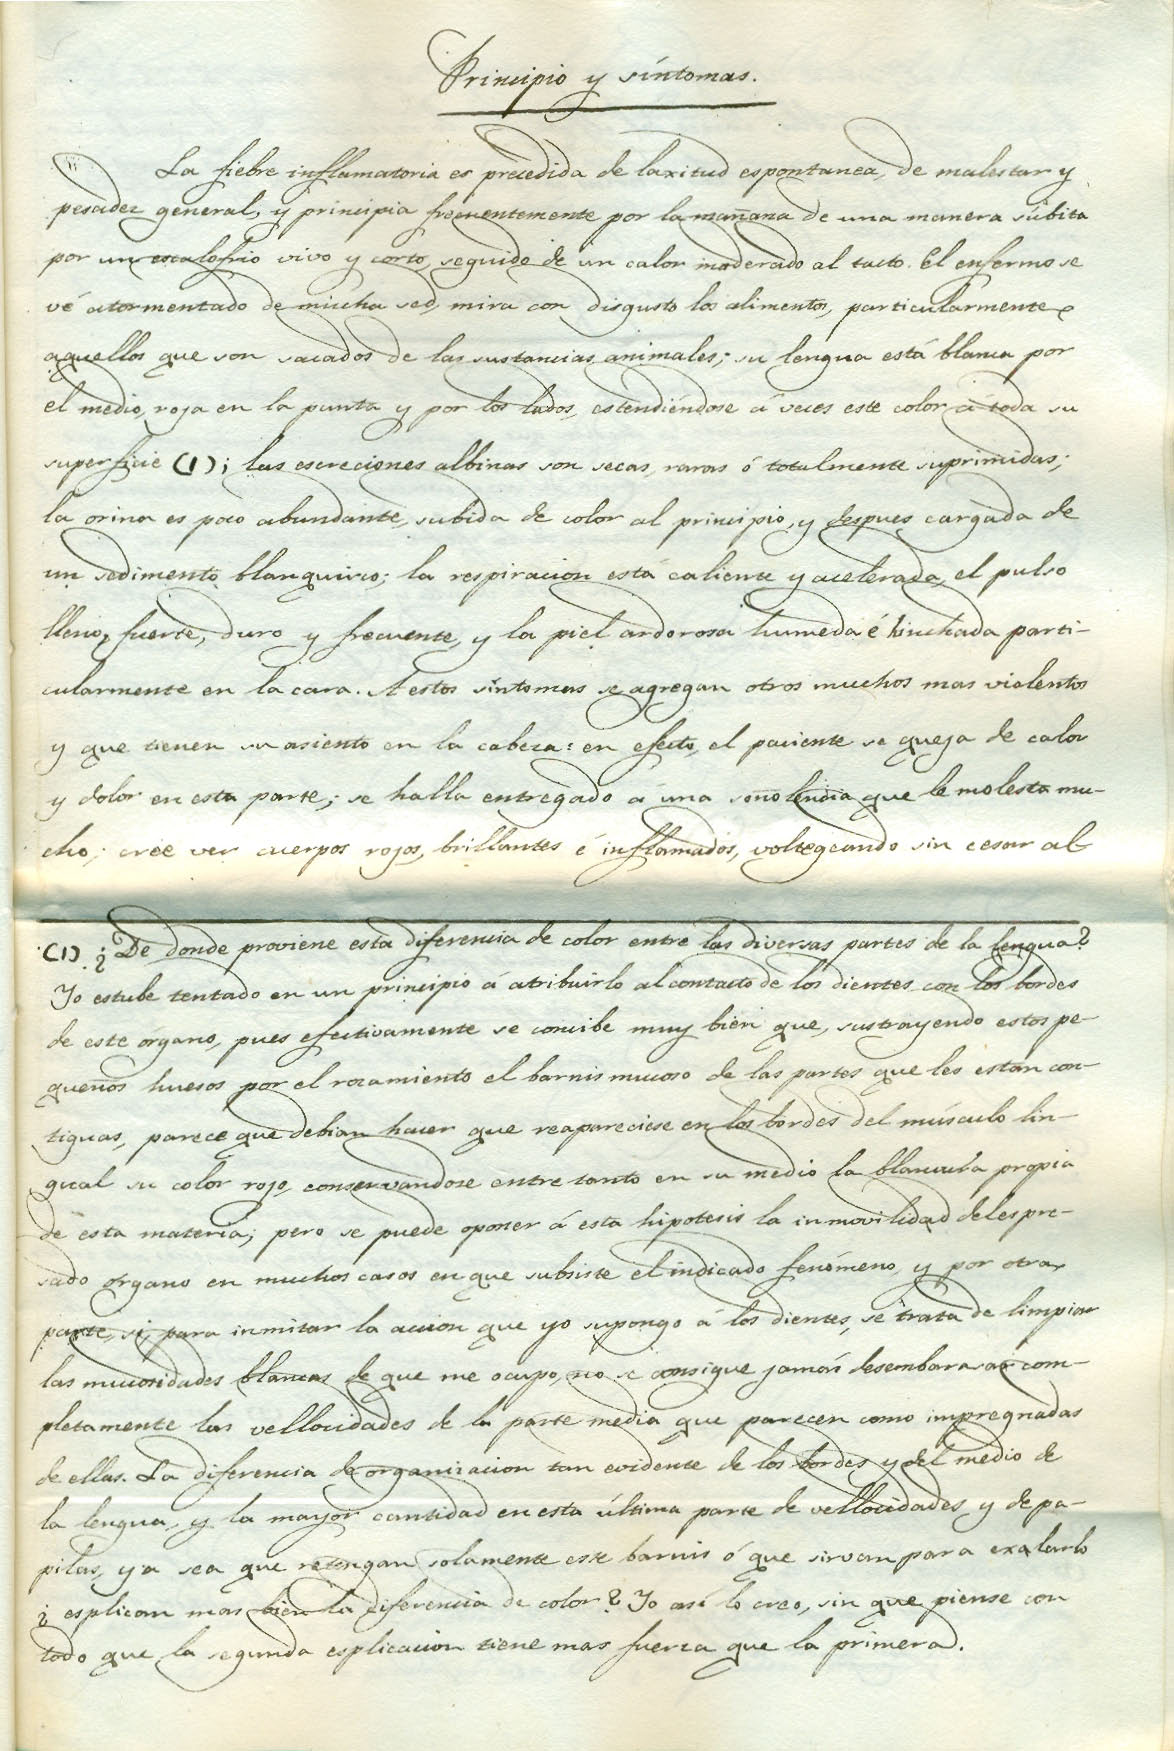 Principio y síntomas.
La fiebre inflamatoria es precedida de laxitud espontanea, de malestar y
pesadez general, y principia frecuentemente por la mañana de una manera súbita
por un escalofrio vivo y corto, seguido de un calor moderado al tacto. El enfermo se
vé atormentado de mucha sed, mira con disgusto los alimentos, particularmente
aquellos que son sacados de las sustancias animales; su lengua está blanca por
el medio, roja en la punta y por los lados, estendiéndose á veces este color á toda su
superficie (1); las escreciones albinas son secas, raras ó totalmente suprimidas;
la orina es poco abundante, subida de color al principio, y despues cargada de
un sedimento blanquizco; la respiracion está caliente y acelerada, el pulso
lleno, fuerte, duro y frecuente, y la piel ardorosa humeda é hinchada parti-
cularmente en la cara. A estos síntomas se agregan otros muchos mas violentos
y que tienen su asiento en la cabeza: en efecto, el paciente se queja de calor
y dolor en esta parte; se halla entregado á una soñolencia que le molesta mu-
cho; cree ver cuerpos rojos, brillantes é inflamados, voltegeando sin cesar al
(1) ¿De donde proviene esta diferencia de color entre las diversas partes de la lengua?
Yo estube tentado en un principio á atribuirlo al contacto de los dientes con los bordes
de este órgano, pues efectivamente se concibe muy bien que, sustrayendo estos pe-
queños huesos por el rozamiento el barnis mucoso de las partes que les están con-
tiguas, parece que debian hacer que reapareciese en los bordes del músculo lin-
gual su color rojo, conservandose entre tanto en su medio la blancura propia
de esta materia; pero se puede oponer á esta hipotesis la inmovilidad del espre-
sado órgano en muchos casos en que subsiste el indicado fenómeno, y por otra
parte, si, para inmitar la accion que yo supongo á los dientes, se trata de limpiar
las mucosidades blancas de que me ocupo, no se consigue jamás desembarasar com-
pletamente las vellocidades de la parte media que parecen como impregnadas
de ellas. La diferencia de organizacion tan evidente de los bordes y del medio de
la lengua, y la mayor cantidad en esta última parte de vellocidades y de pa-
pilas, ya sea que retengan solamente este barnis ó que sirvan para exalarlo
¿esplican mas bien la diferencia de color? Yo así lo creo, sin que piense con
todo que la segunda esplicacion tiene mas fuerza que la primera.